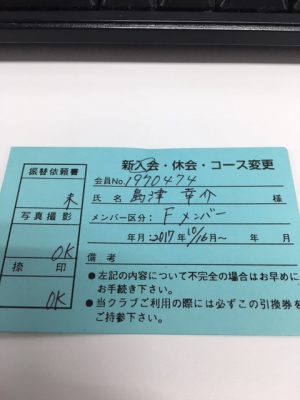 新入会・休会・コース変更
会員No. 1970474
氏名 島津 幸介 様
メンバー区分: Fメンバー
年月: 2017 10/16月~ 年 月
備考
●左記の内容について不完全の場合はお早めに
お手続き下さい。
●当クラブご利用の際には必ずこの引換券を
ご持参下さい。
振替依頼書
未
写真撮影
OK
捺印
OK